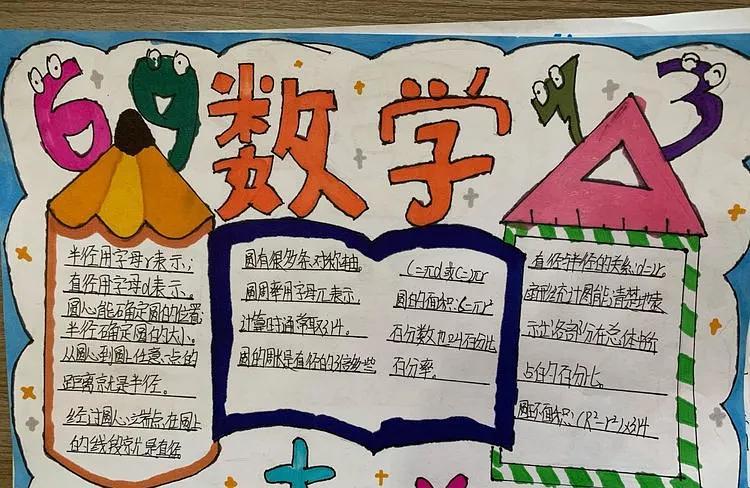 69
数学
93
半径用字母r表示;
直径用字母d表示。
圆心能确定圆的位置;
半径确定圆的大小。
从圆心到圆上任意一点的
距离就是半径。
经过圆心立端点在圆上
的线段就是直径
圆有很多条对称轴。
圆周率用字母π表示,
计算时通常取3.14。
圆的周长是直径的3倍多些
C=πd或C=πr
圆的面积:S=πr²
百分数也叫百分比
百分率。
直径与半径的关系:d=2r。
扇形统计图能清楚地表
示出各部分在总体中所
占的百分比。
圆环面积:(R²-r²)×3.14